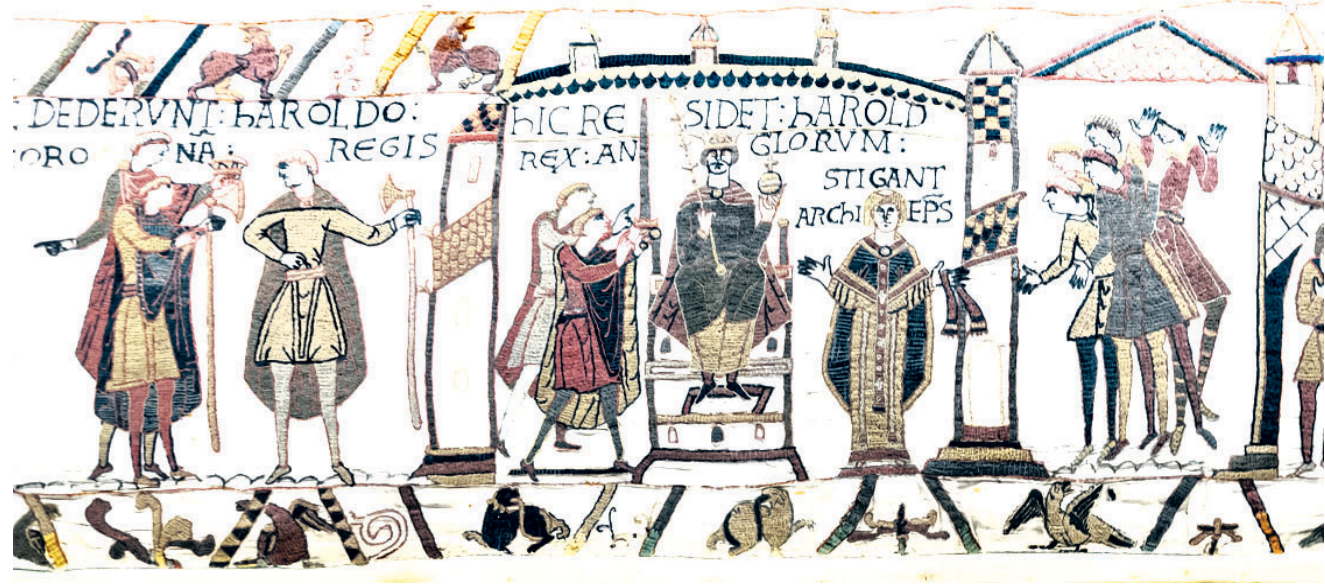 DEDERVNT: hAROLDO:
CORO NÃ: REGIS
hIC RE SIDET: hAROLD
REX: AN GLORVM:
STIGANT
ARChI EP̃S